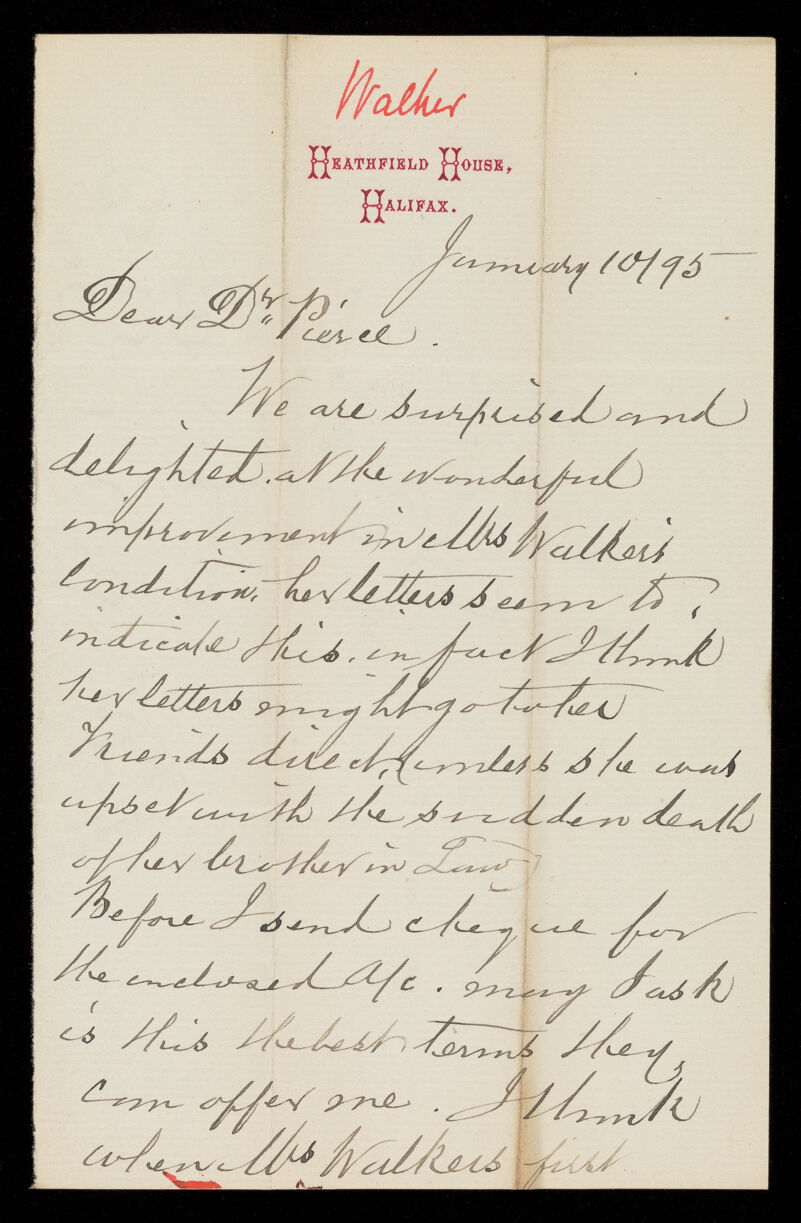 Walker
HEATHFIELD HOUSE,
HALIFAX.
January 10/95
Dear Dr. Pierce.
We are surprised and
delighted. at the wonderful
improvement in Mrs Walker's
condition. her letters seem to,
indicate this. in fact I think
her letters might go to her
Friends direct, (unless she was
upset with the sudden death
of her brother in Law)
Before I send cheque for
the enclosed A/c. may I ask
is this the best terms they,
can offer me. I think
when Mrs Walkers first